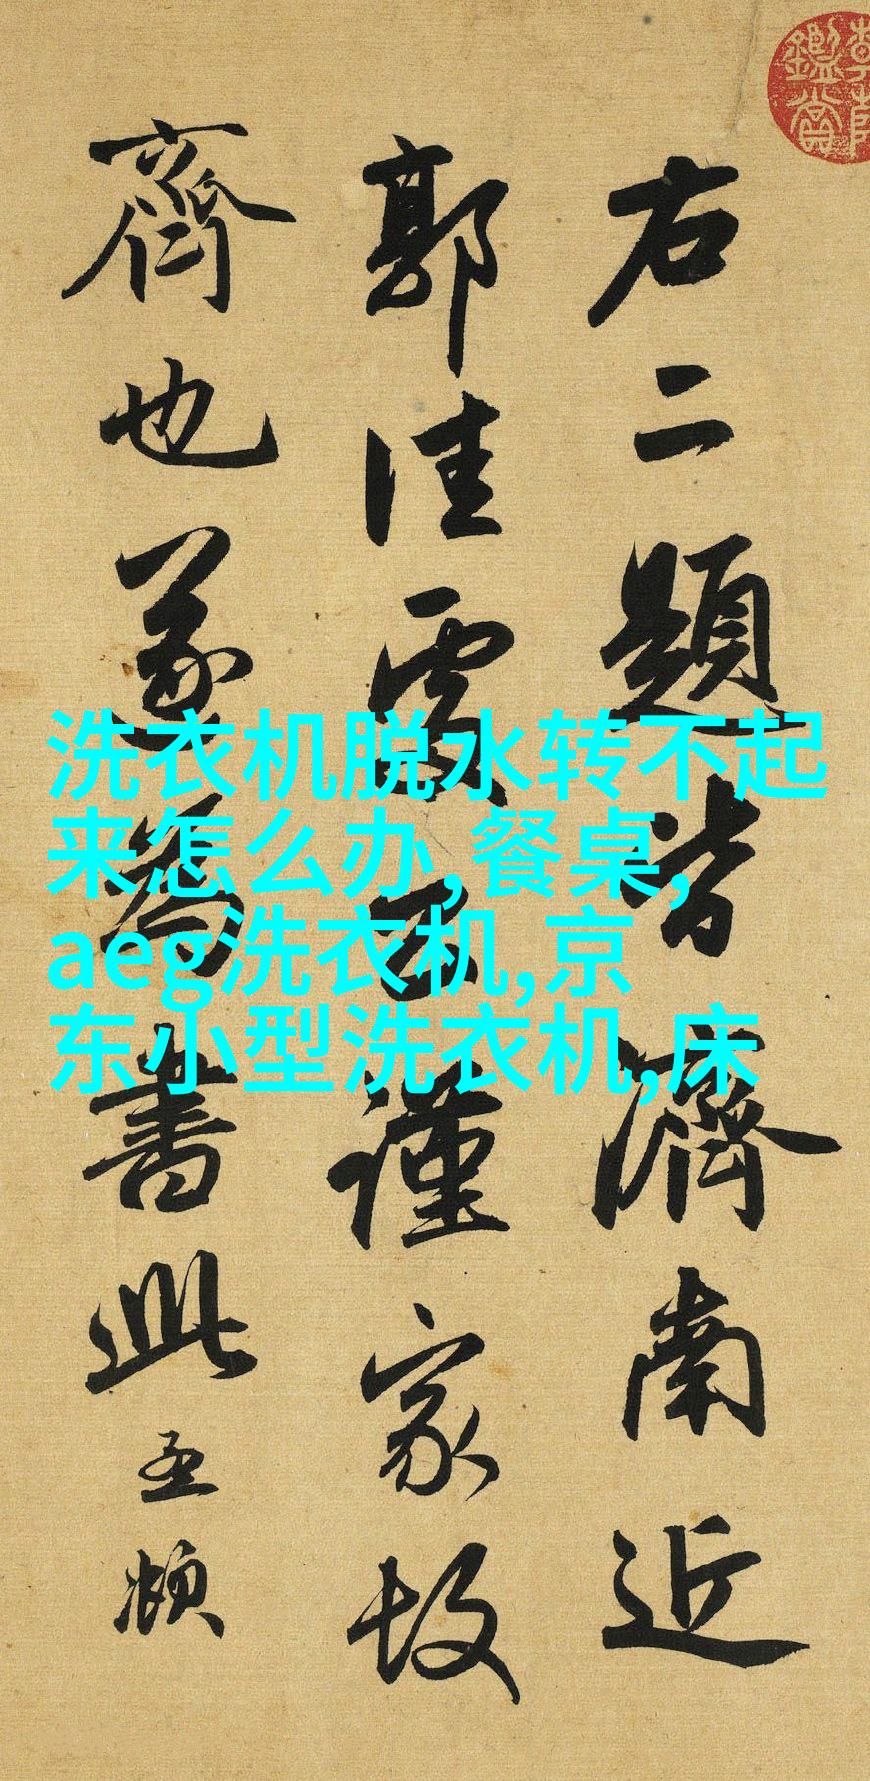 右二題皆濟南近
郭佳處公謹家故
齊也遂為書此孟頫
洗衣机脱水转不起
来怎么办,餐桌,
aeg洗衣机,京
东小型洗衣机,床
鑑賞